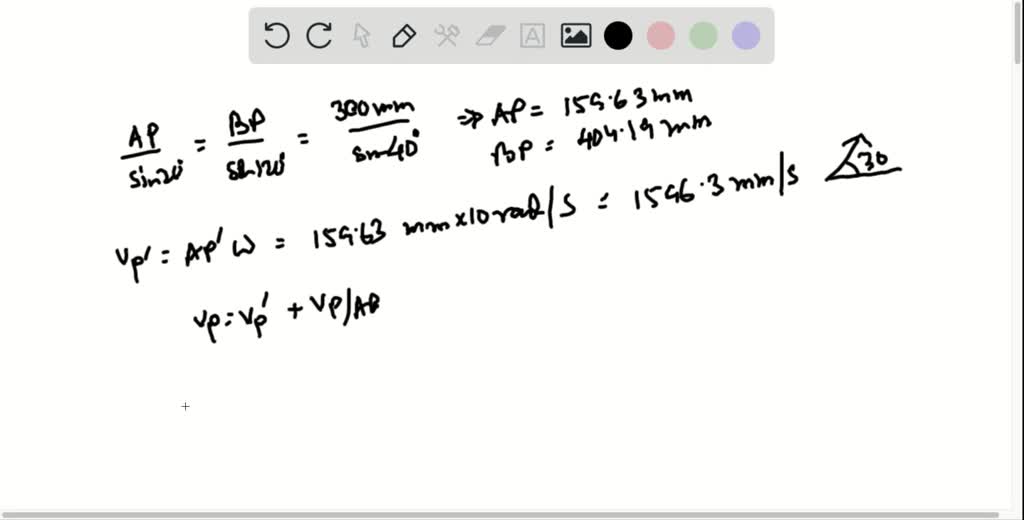 AP/sin20° = BP/sin120° = 300mm/sin40° ⇒ AP = 159.63mm
BP = 404.19 mm
Vp' = AP' ω = 159.63 mm×10 rad/s = 1596.3 mm/s 30
Vp = Vp' + VP/AB